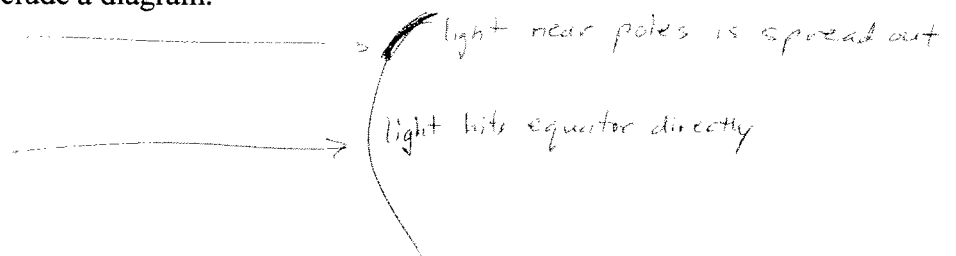 a diagram.
light near poles is spread out
light hits equator directly